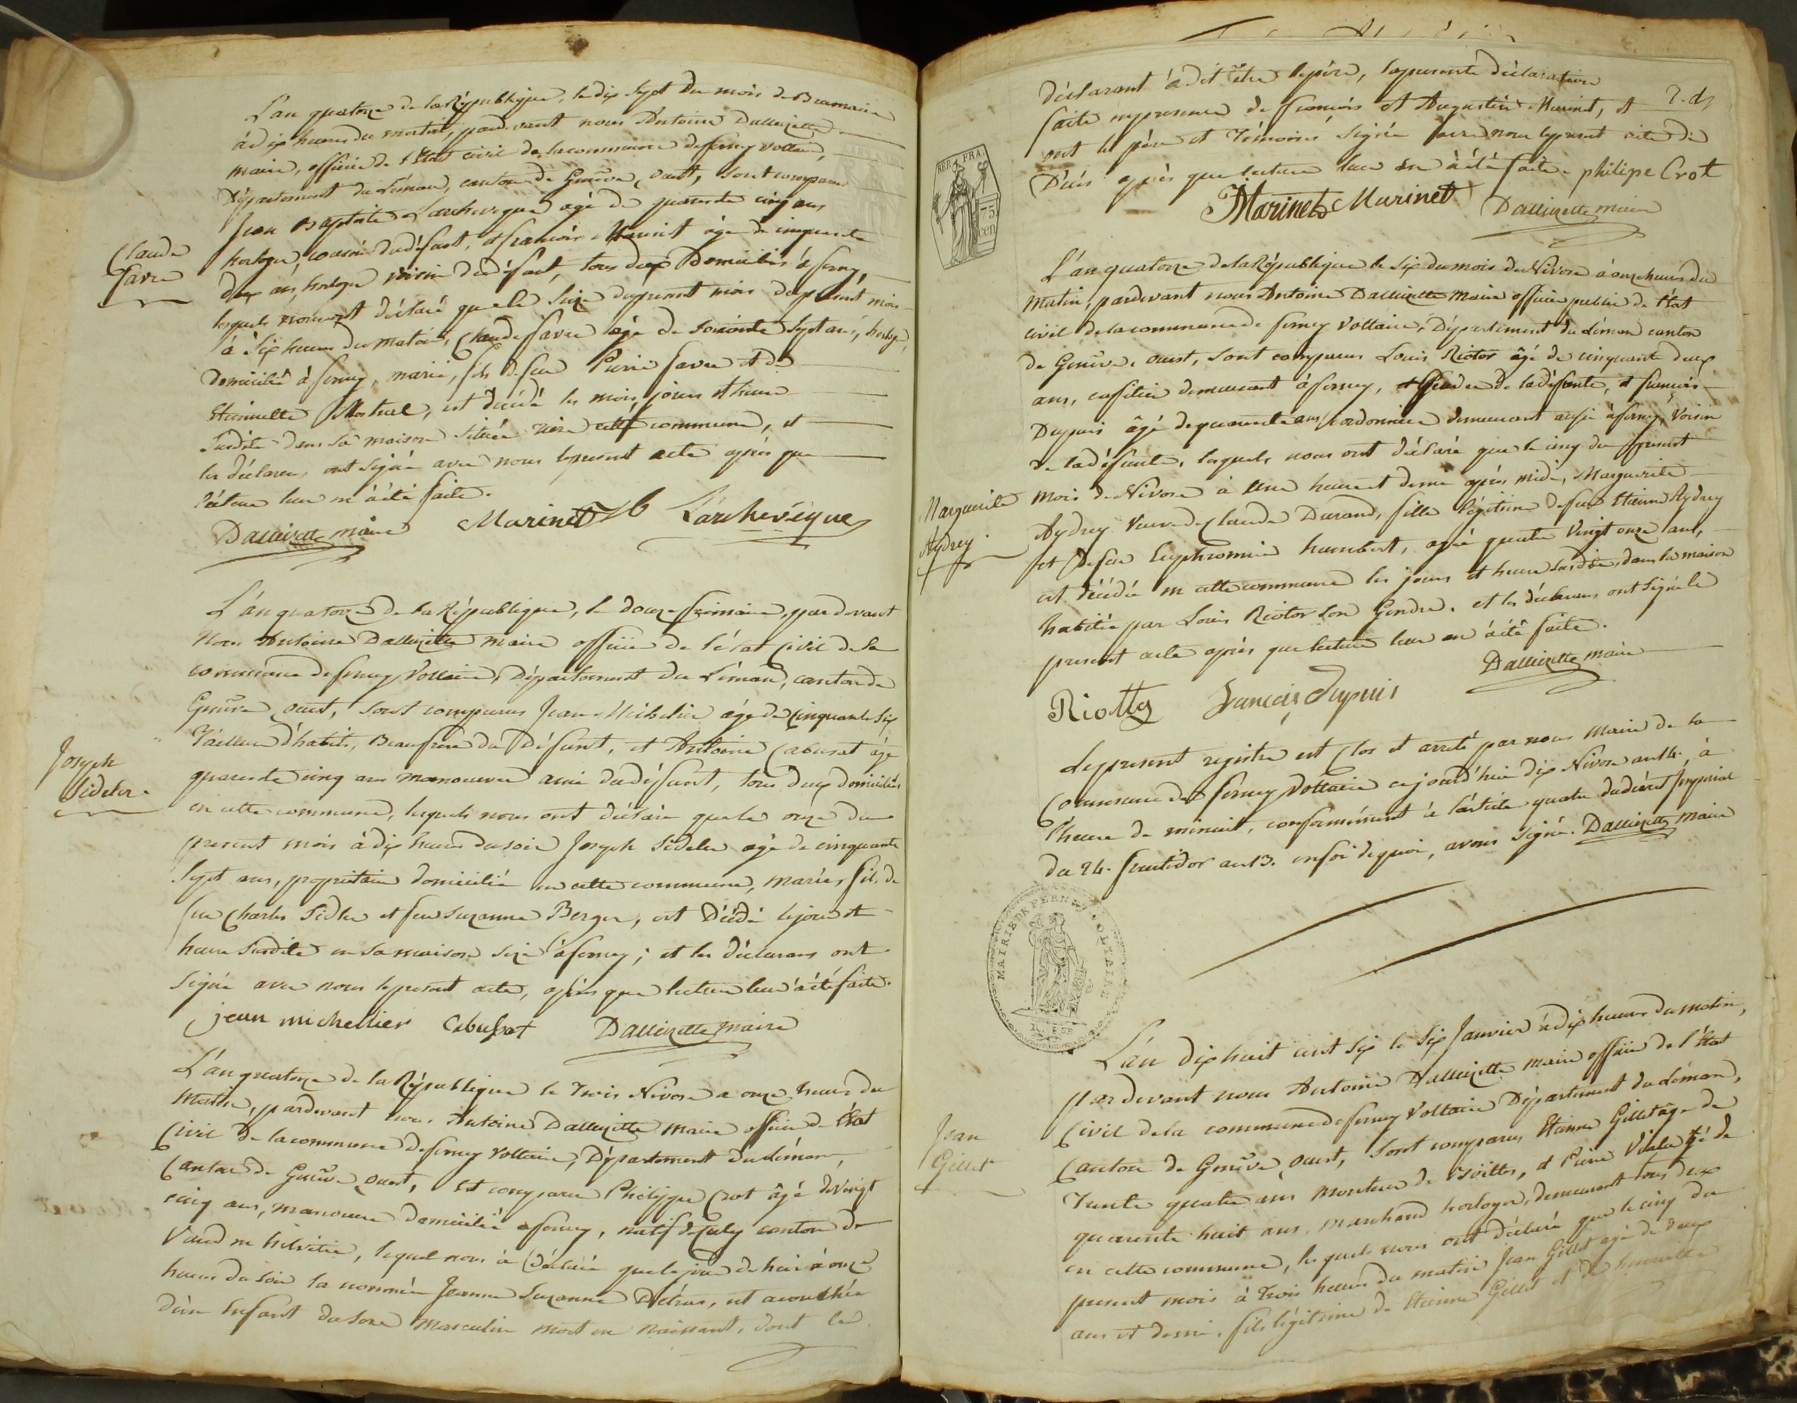 L'an quatorze de la République, le dix Sept du mois de Brumaire
à dix heures du matin, pardevant nous Antoine Dallizette
maire, officier de l'état civil de la commune de ferney voltaire,
Département du Léman, canton de Genève, ouest, sont comparus
Jean Baptiste Larcheveque agé de quarente cinq ans
horloger, cousin du défunt, et françois Marinet âgé de cinquante
deux ans, horloger voisin du défunt, tous deux Domiciliés à ferney,
lesquels nous ont déclaré que le Seize du présent mois
à Six heures du matin, Claude favre âgé de soixante Sept ans, horloger,
Domicilié à ferney, marié, fils de feu Pierre favre et de
Etiennette, est décédé les mois, jours et heure
Susdite dans sa maison située rière cette commune, et
les déclarans ont signé avec nous le présent acte après que
lecture leur en a été faite.
Claude
favre
Dallizette maire Marinet Larchevêque
L'an quatorze de la République, le douze frimaire, par devant
Nous Antoine Dallizette maire officier de l'état Civil de la
commune de ferney Voltaire, Département du Léman, canton de
Genève ouest, sont comparus Jean Michelier âgé de Cinquante Six
Tailleur d'habits, Beaufrère du Défunt, et Antoine Cabusat âgé
quarente cinq ans manoeuvre ami du défunt, tous deux domiciliés
en cette commune, lesquels nous ont déclaré que le onze du
présent mois à dix heures du soir Joseph Sideler âgé de cinquante
Sept ans, propriétaire domicilié en cette commune, marié, fils de
feu Charles Sidler et feu Suzanne Berger, est Décédé le jour et
heure Susdite en sa maison sise à ferney; et les déclarans ont
Signé avec nous le présent acte, après que lecture leur a été faite.
Joseph
Sideler.
jean michellier Cabusat Dallizette maire
L'an quatorze de la République le Trois Nivose a onze heures du
Matin, pardevant nous Antoine Dallizette Maire officier de l'état
Civil de la commune de ferney Voltaire, Département du Léman,
Canton de Genève Ouest, est comparu Philippe Crot âgé de vingt
cinq ans, manoeuvre domicilié a ferney, natif de Culy canton de
Vaud en helvétie, lequel nous à Déclaré que le jour d'hier à onze
heures du soir la nommée Jeanne Suzanne, est acouchée
d'un Enfant du sexe masculin mort en naissant, dont le
déclarant à dit être le père, la présente déclaration
faite en présence de françois et Augustin Marinet, et
ont le père et Témoins Signé avec nous le présent acte de
Décès après que lecture leur en à été faite. philipe Crot
Marinet Marinet Dallizette maire
REP. FRA.
L'an quatorze de la République le Six du mois de Nivose à onze heures du
Matin, pardevant nous Antoine Dallizette Maire officier public de l'état
civil de la commune de ferney Voltaire, Département du Léman canton
de Genève, ouest, sont comparus Louis Riotor âgé de cinquante deux
ans, cafetier demeurant à ferney, et Gendre de la défunte, et françois
Dupuis âgé de quarente ans, Cordonnier demeurant aussi à ferney, Voisin
de la défunte, lesquels nous ont déclaré que le cinq du présent
mois de Nivose à une heure et demie après midi, Marguerite
Aydrey Veuve de Claude Durand, fille légitime de feu Etienne Aydrey
et de feu Euphrosine humbert, agée quatre Vingt onze ans,
est décédée en cette commune les jours et heure Susdite, dans la maison
habitée par Louis Riotor Son Gendre. et les déclarans ont signé le
présent acte après que lecture leur en à été faite.
Marguerite
Aydrey.
Riottor francois Dupuis Dallizette maire
Le présent registre est Clos et arrêté par nous Maire de la
Commune de ferney Voltaire ce jourd'hui dix Nivose an 14. à
l'heure de minuit, conformément à l'article quatre du décret Impérial
du 24. fructidor an 13. en foi de quoi, avons signé. Dallizette maire
MAIRIE DE FERNEY VOLTAIRE
L'an dix huit cent six le Six Janvier à dix heures du matin,
pardevant nous Antoine Dallizette maire officier de l'état
Civil de la commune de ferney Voltaire Département du Léman,
Canton de Genève Ouest, sont comparus Etienne Gillet âgé de
Trente quatre ans Monteur de Boëttes, et Pierre âgé de
quarente huit ans marchand horloger, demeurant tous deux
en cette commune, lesquels nous ont déclaré que le cinq du
présent mois à Trois heures du matin Jean Gillet agé de deux
ans et demi, fils légitime de Etienne Gillet et de
Jean
Gillet